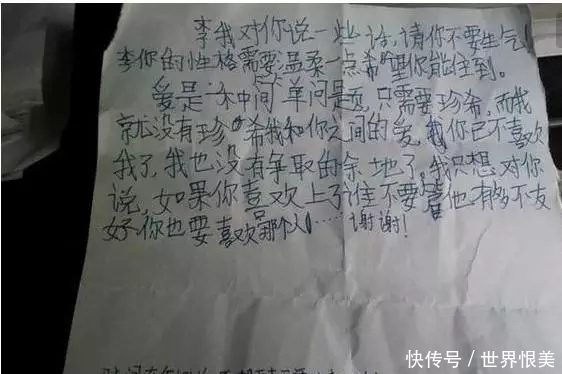 李我对你说一些话,请你不要生气!
李你的性格需要温柔一点希望你能住到。
爱是一木中间单问题,只需要珍希,而我
就没有珍希我和你之间的爱,我你已不喜欢
我了,我也没有争取的余地了,我只想对你
说,如果你喜欢上了谁不要管他有多不友
好你也要喜欢那个人……谢谢!
快传号/世界恨美